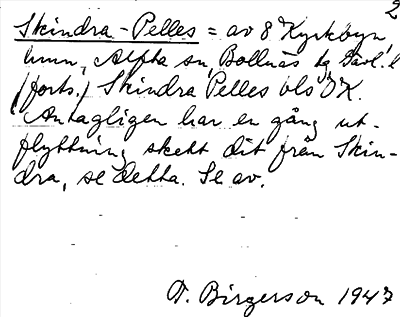 2
Skindra-Pelles = av 8 Kyrkbyn
hmn, Alfta sn, Bollnäs tg Gävl. l
(forts.) Skindra Pelles bls ÖK.
Antagligen har en gång ut-
flyttning skett dit från Skin-
dra, se detta. Se av.
D. Birgerson 1947